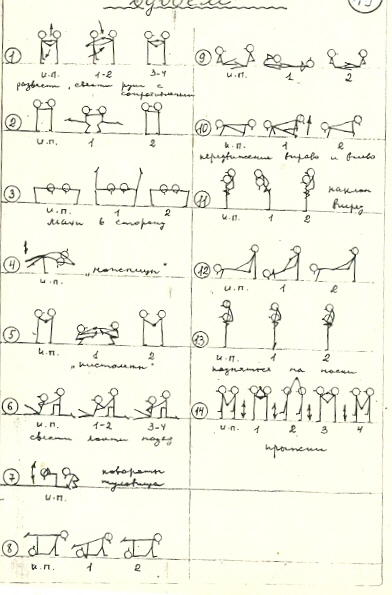 13
1
и.п. 1-2 3-4
развести, свести руки с
сопротивлением
2
и.п. 1 2
3
и.п. 1 2
махи в сторону
4
"ножницы"
и.п.
5
и.п. 1 2
"пистолеты"
6
и.п. 1-2 3-4
свести локти назад
7
повороты
туловища
и.п.
8
и.п. 1 2
9
и.п. 1 2
10
и.п. 1 2
передвижение вправо и влево
11
наклон
вперед
и.п. 1 2
12
и.п. 1 2
13
и.п. 1 2
подняться на носки
14
и.п. 1 2 3 4
прыжки